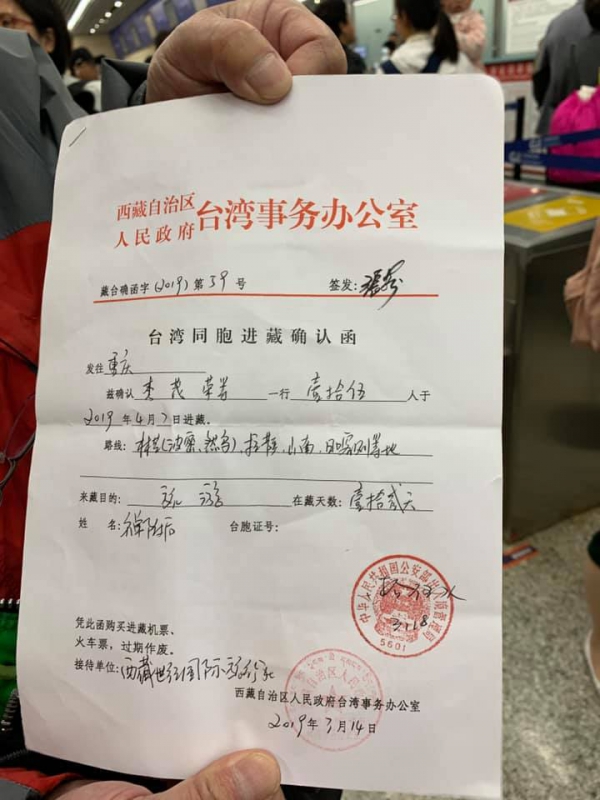 西藏自治区
人民政府 台湾事务办公室
藏台确函字(2019)第39号 签发:
台湾同胞进藏确认函
发往重庆
兹确认 李茂荣等 一行 壹拾伍 人于
2019年4月7日进藏。
路线:林芝(波密、然乌)、拉萨、山南、日喀则等地
来藏目的: 旅游 在藏天数:壹拾贰天
姓 名: 台胞证号:
中华人民共和国公安部出入境管理局
5601
凭此函购买进藏机票、
火车票,过期作废。
接待单位:西藏世纪国际旅行社
西藏自治区人民政府台湾事务办公室
2019年3月14日